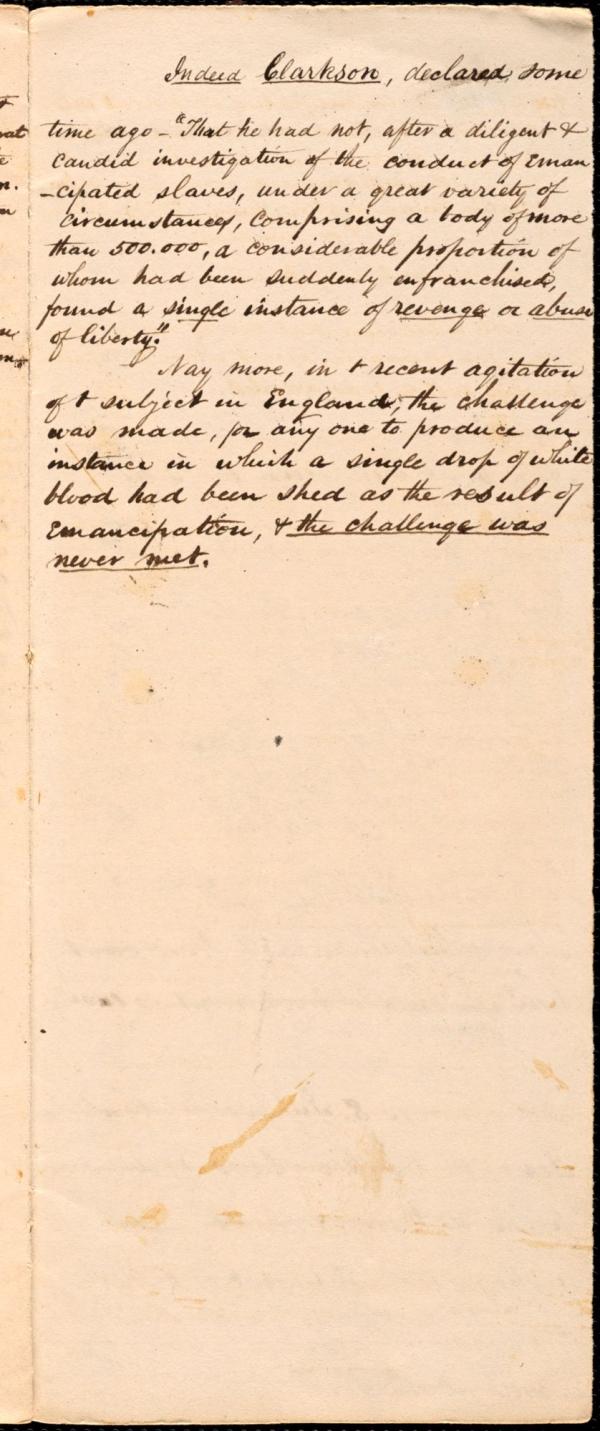 Indeed Clarkson, declared some
time ago - "That he had not, after a diligent &
candid investigation of the conduct of Eman
-cipated slaves, under a great variety of
circumstances, comprising a body of more
than 500.000, a considerable proportion of
whom had been suddenly enfranchised,
found a single instance of revenge or abuse
of liberty."
Nay more, in t recent agitation
of t subject in England, the challenge
was made, for any one to produce an
instance in which a single drop of white
blood had been shed as the result of
Emancipation, & the challenge was
never met.